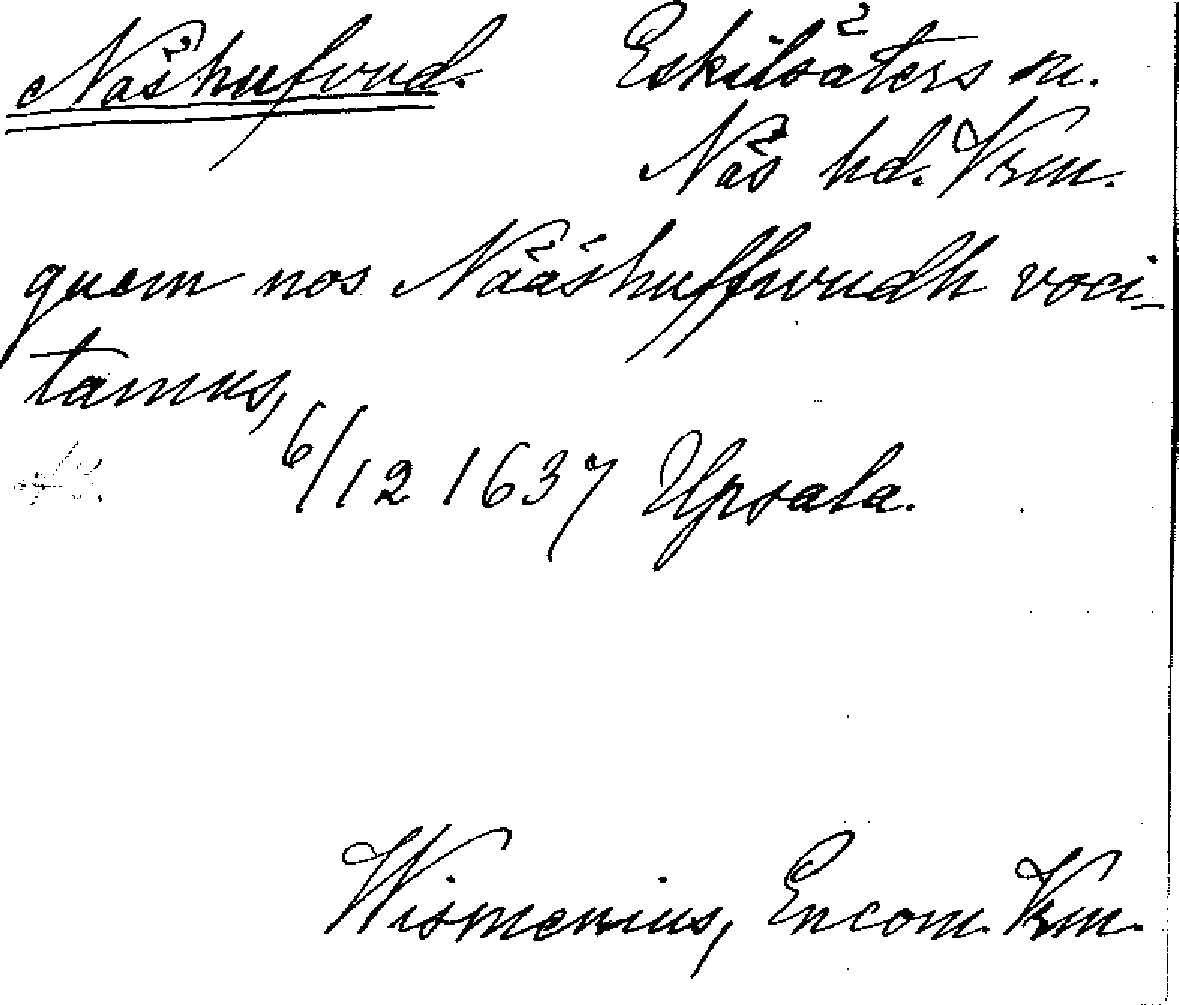 Näshufvud. Eskilsäters sn.
Näs hd. Vrm.
quem nos Nääshuffwudh voci-
tamus,
6/12 1637 Upsala.
Wismenius, Encom. Vrm.